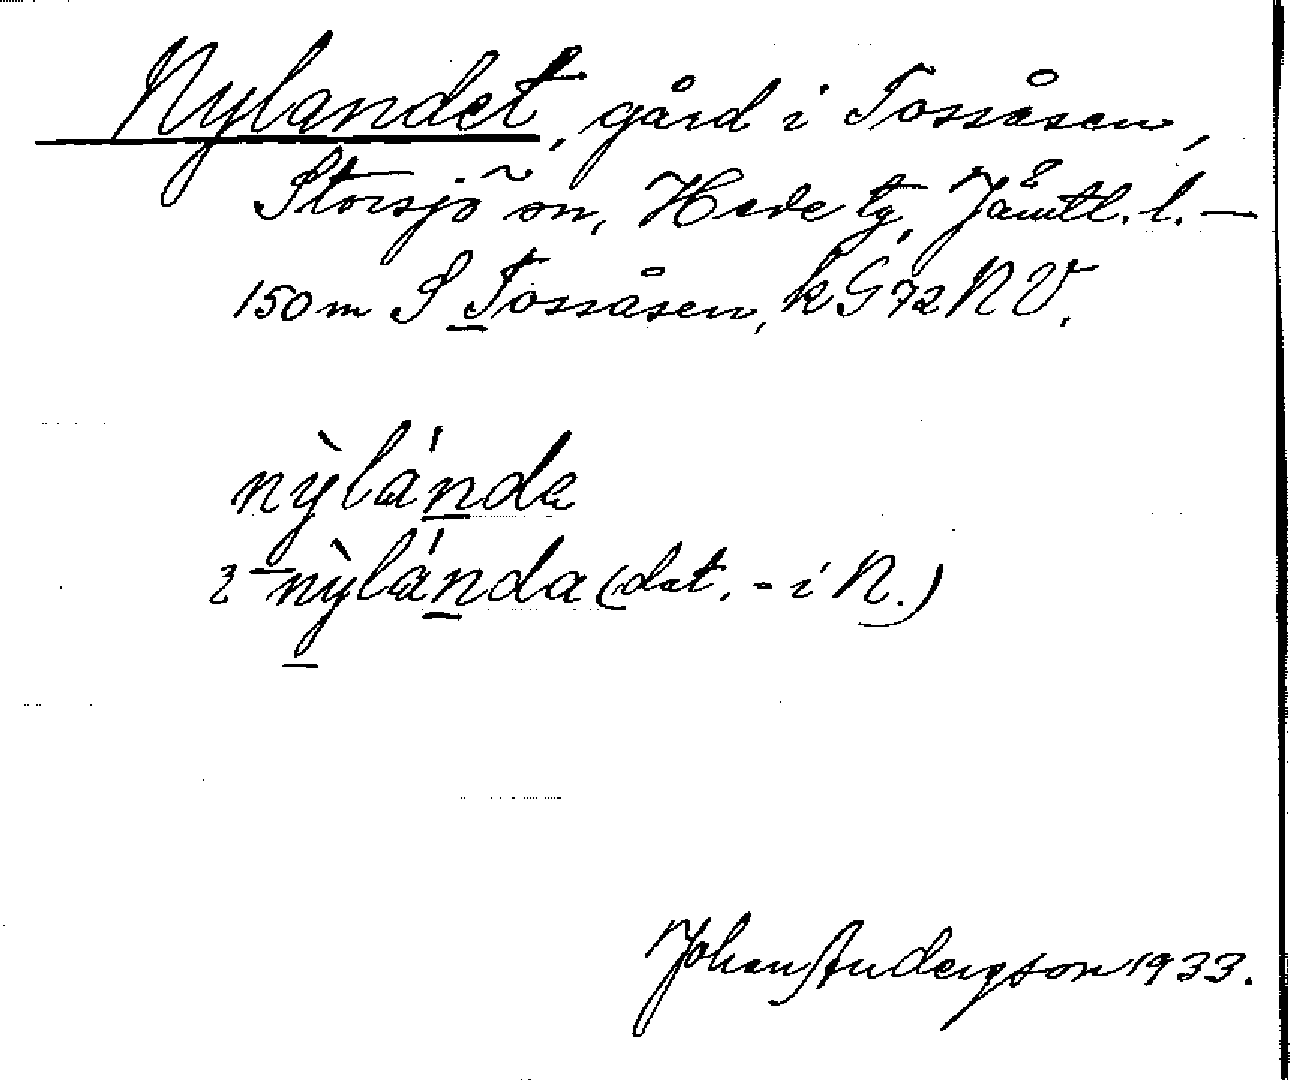 Nylandet, gård i Tossåsen,
Storsjö sn, Hede tg, Jämtl. l. —
150 m S Tossåsen, kG 72 NV.
nỳlánda
2 nỳlánda (dat. - i N.)
Johan Anderson 1933.